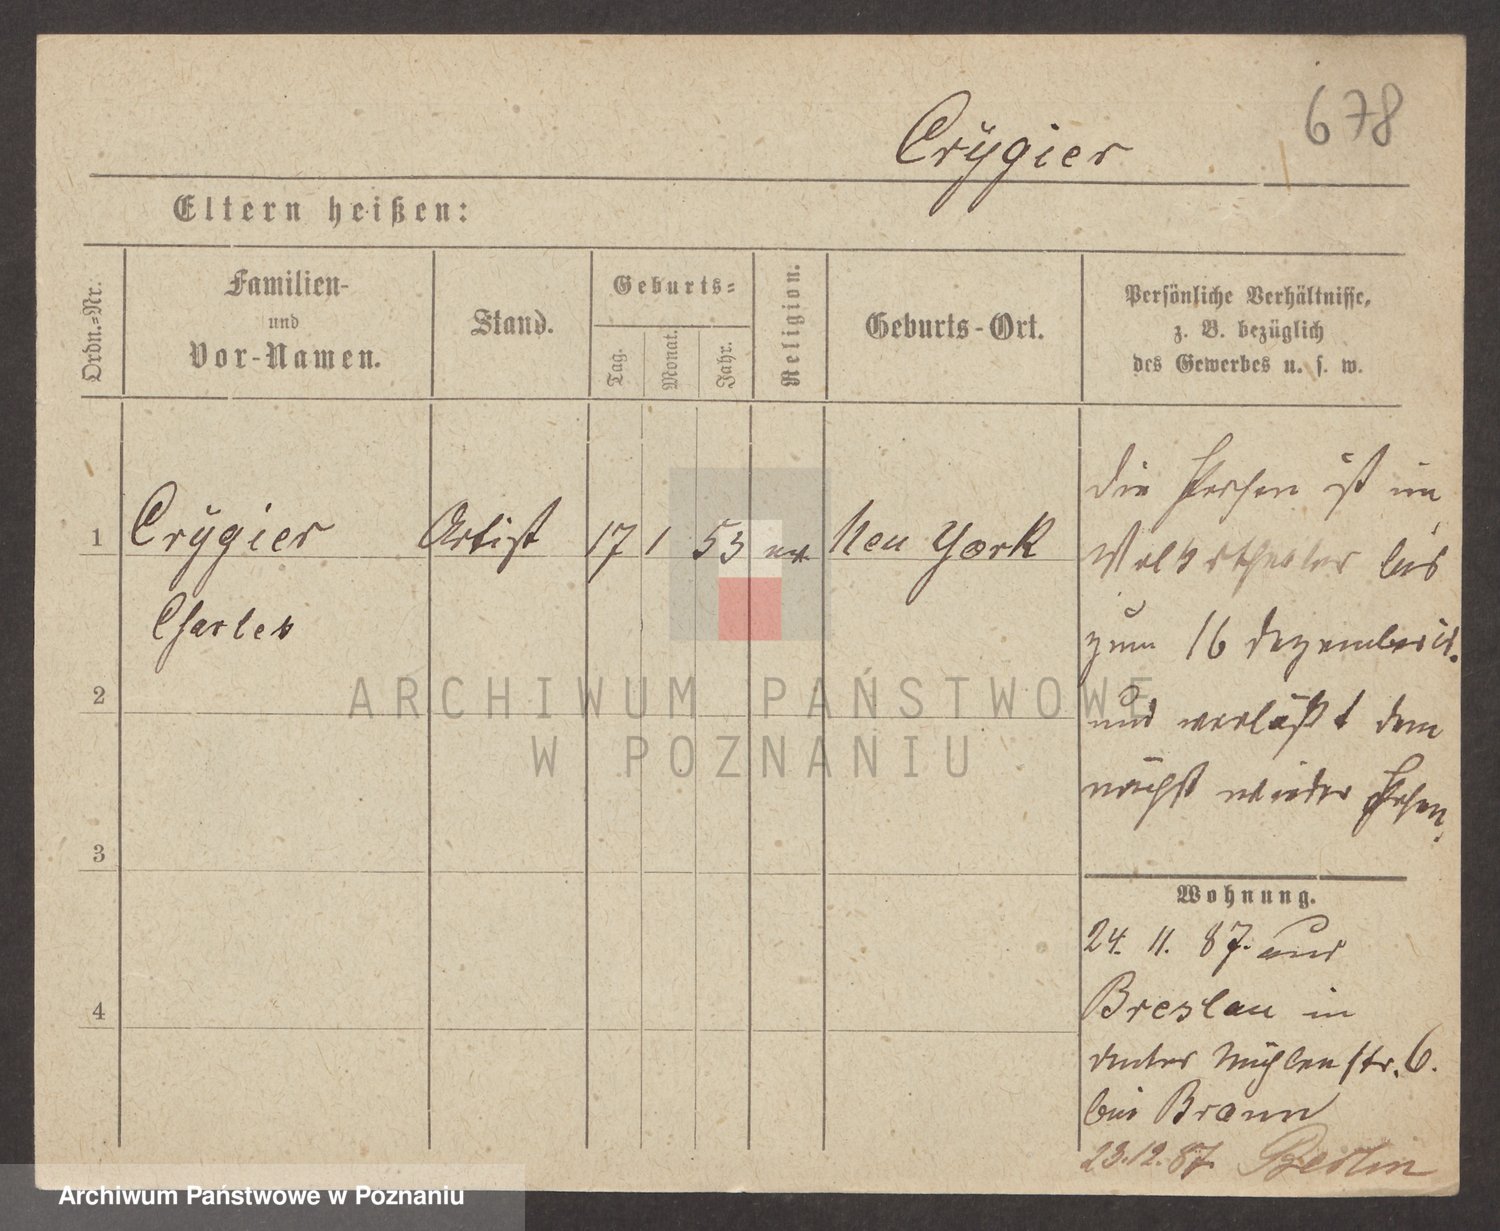 678
Crÿgier
Eltern heißen:
Ordn.=Nr.
Familien-
und
Vor-Namen.
Stand.
Geburts=
Tag.
Monat.
Jahr.
Religion.
Geburts-Ort.
Persönliche Verhältnisse,
z. B. bezüglich
des Gewerbes u. s. w.
1
Crÿgier
Artist
17
1
53
New York
Charles
2
3
4
die Person ist im
Volkstheater bis
zum 16 Dezember
und verläßt dem
nächst wieder Posen.
Wohnung.
24. 11. 87. aus
Breslau in
Mühlenstr. 6.
bei Braun
23.12.87. Berlin
ARCHIWUM PAŃSTWOWE
W POZNANIU
Archiwum Państwowe w Poznaniu